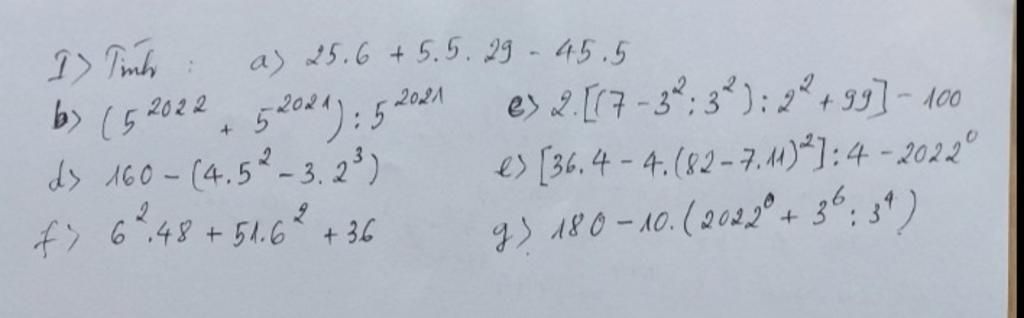 I> Tính : a) 25.6 + 5.5.29 - 45.5
b> (5^2022 + 5^2021) : 5^2021 e> 2.[(7 - 3^2 : 3^2) : 2^2 + 99] - 100
d> 160 - (4.5^2 - 3.2^3) e> [36.4 - 4.(82 - 7.11)^2] : 4 - 2022^0
f> 6^2.48 + 51.6^2 + 36 g> 180 - 10.(2022^0 + 3^6 : 3^4)